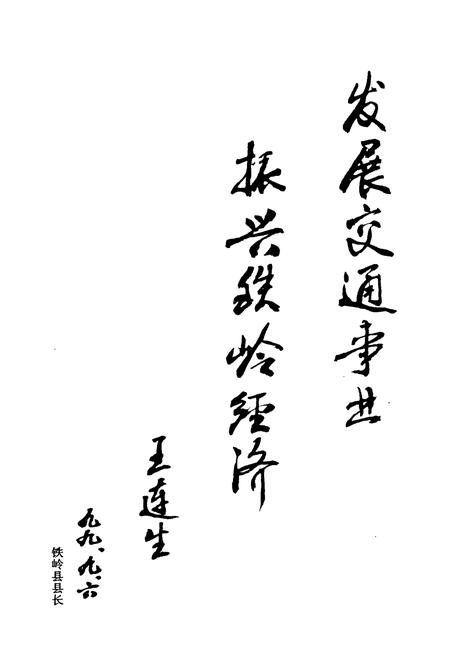 发展交通事业
振兴铁岭經济
王连生
九九、九、六
铁岭县县长